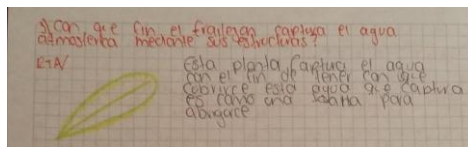 5) Con que fin el frailejon captura el agua
atmosferica mediante sus estructuras?
RTA/
Esta planta captura el agua
con el fin de tener con que
cubrirce esta agua que captura
es como una para
abrigarce